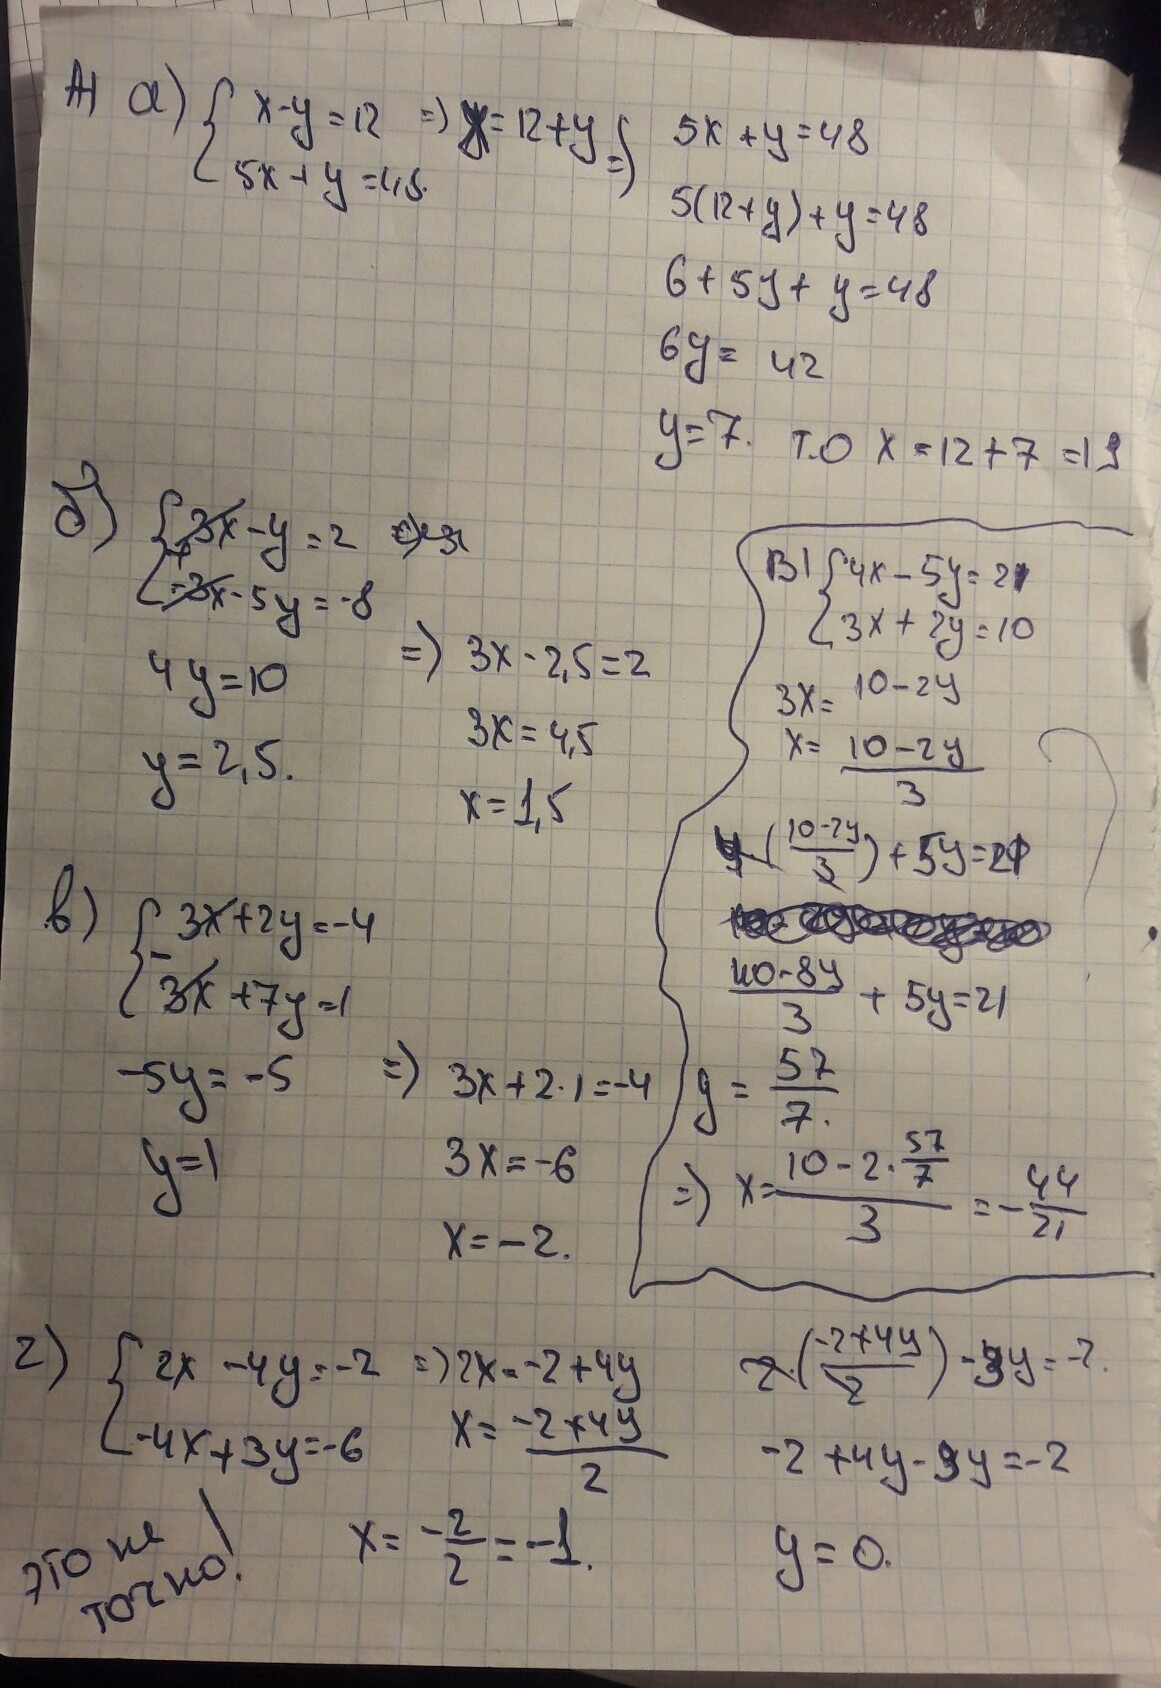 А1 а) { x-y=12 => x=12+y => 5x+y=48
5x+y=48.
5(12+y)+y=48
6+5y+y=48
6y= 42
y=7. т.о x=12+7=19
б) { 3x-y=2 =>
+
-3x-5y=-8
4y=10 => 3x-2,5=2
y=2,5. 3x=4,5
x=1,5
В1 { 4x-5y=21
3x+2y=10
3x= 10-2y
x= (10-2y)/3
4((10-2y)/3)+5y=21
(40-8y)/3 + 5y=21
y = 57/7.
=> x= (10-2·57/7)/3 = -44/21
в) { 3x+2y=-4
-
3x+7y=1
-5y=-5 => 3x+2·1=-4
y=1 3x=-6
x=-2.
г) { 2x-4y=-2 => 2x=-2+4y 2·((-2+4y)/2)-3y=-2.
-4x+3y=-6 x= (-2+4y)/2 -2+4y-3y=-2
x= -2/2 = -1. y=0.
это не
точно!